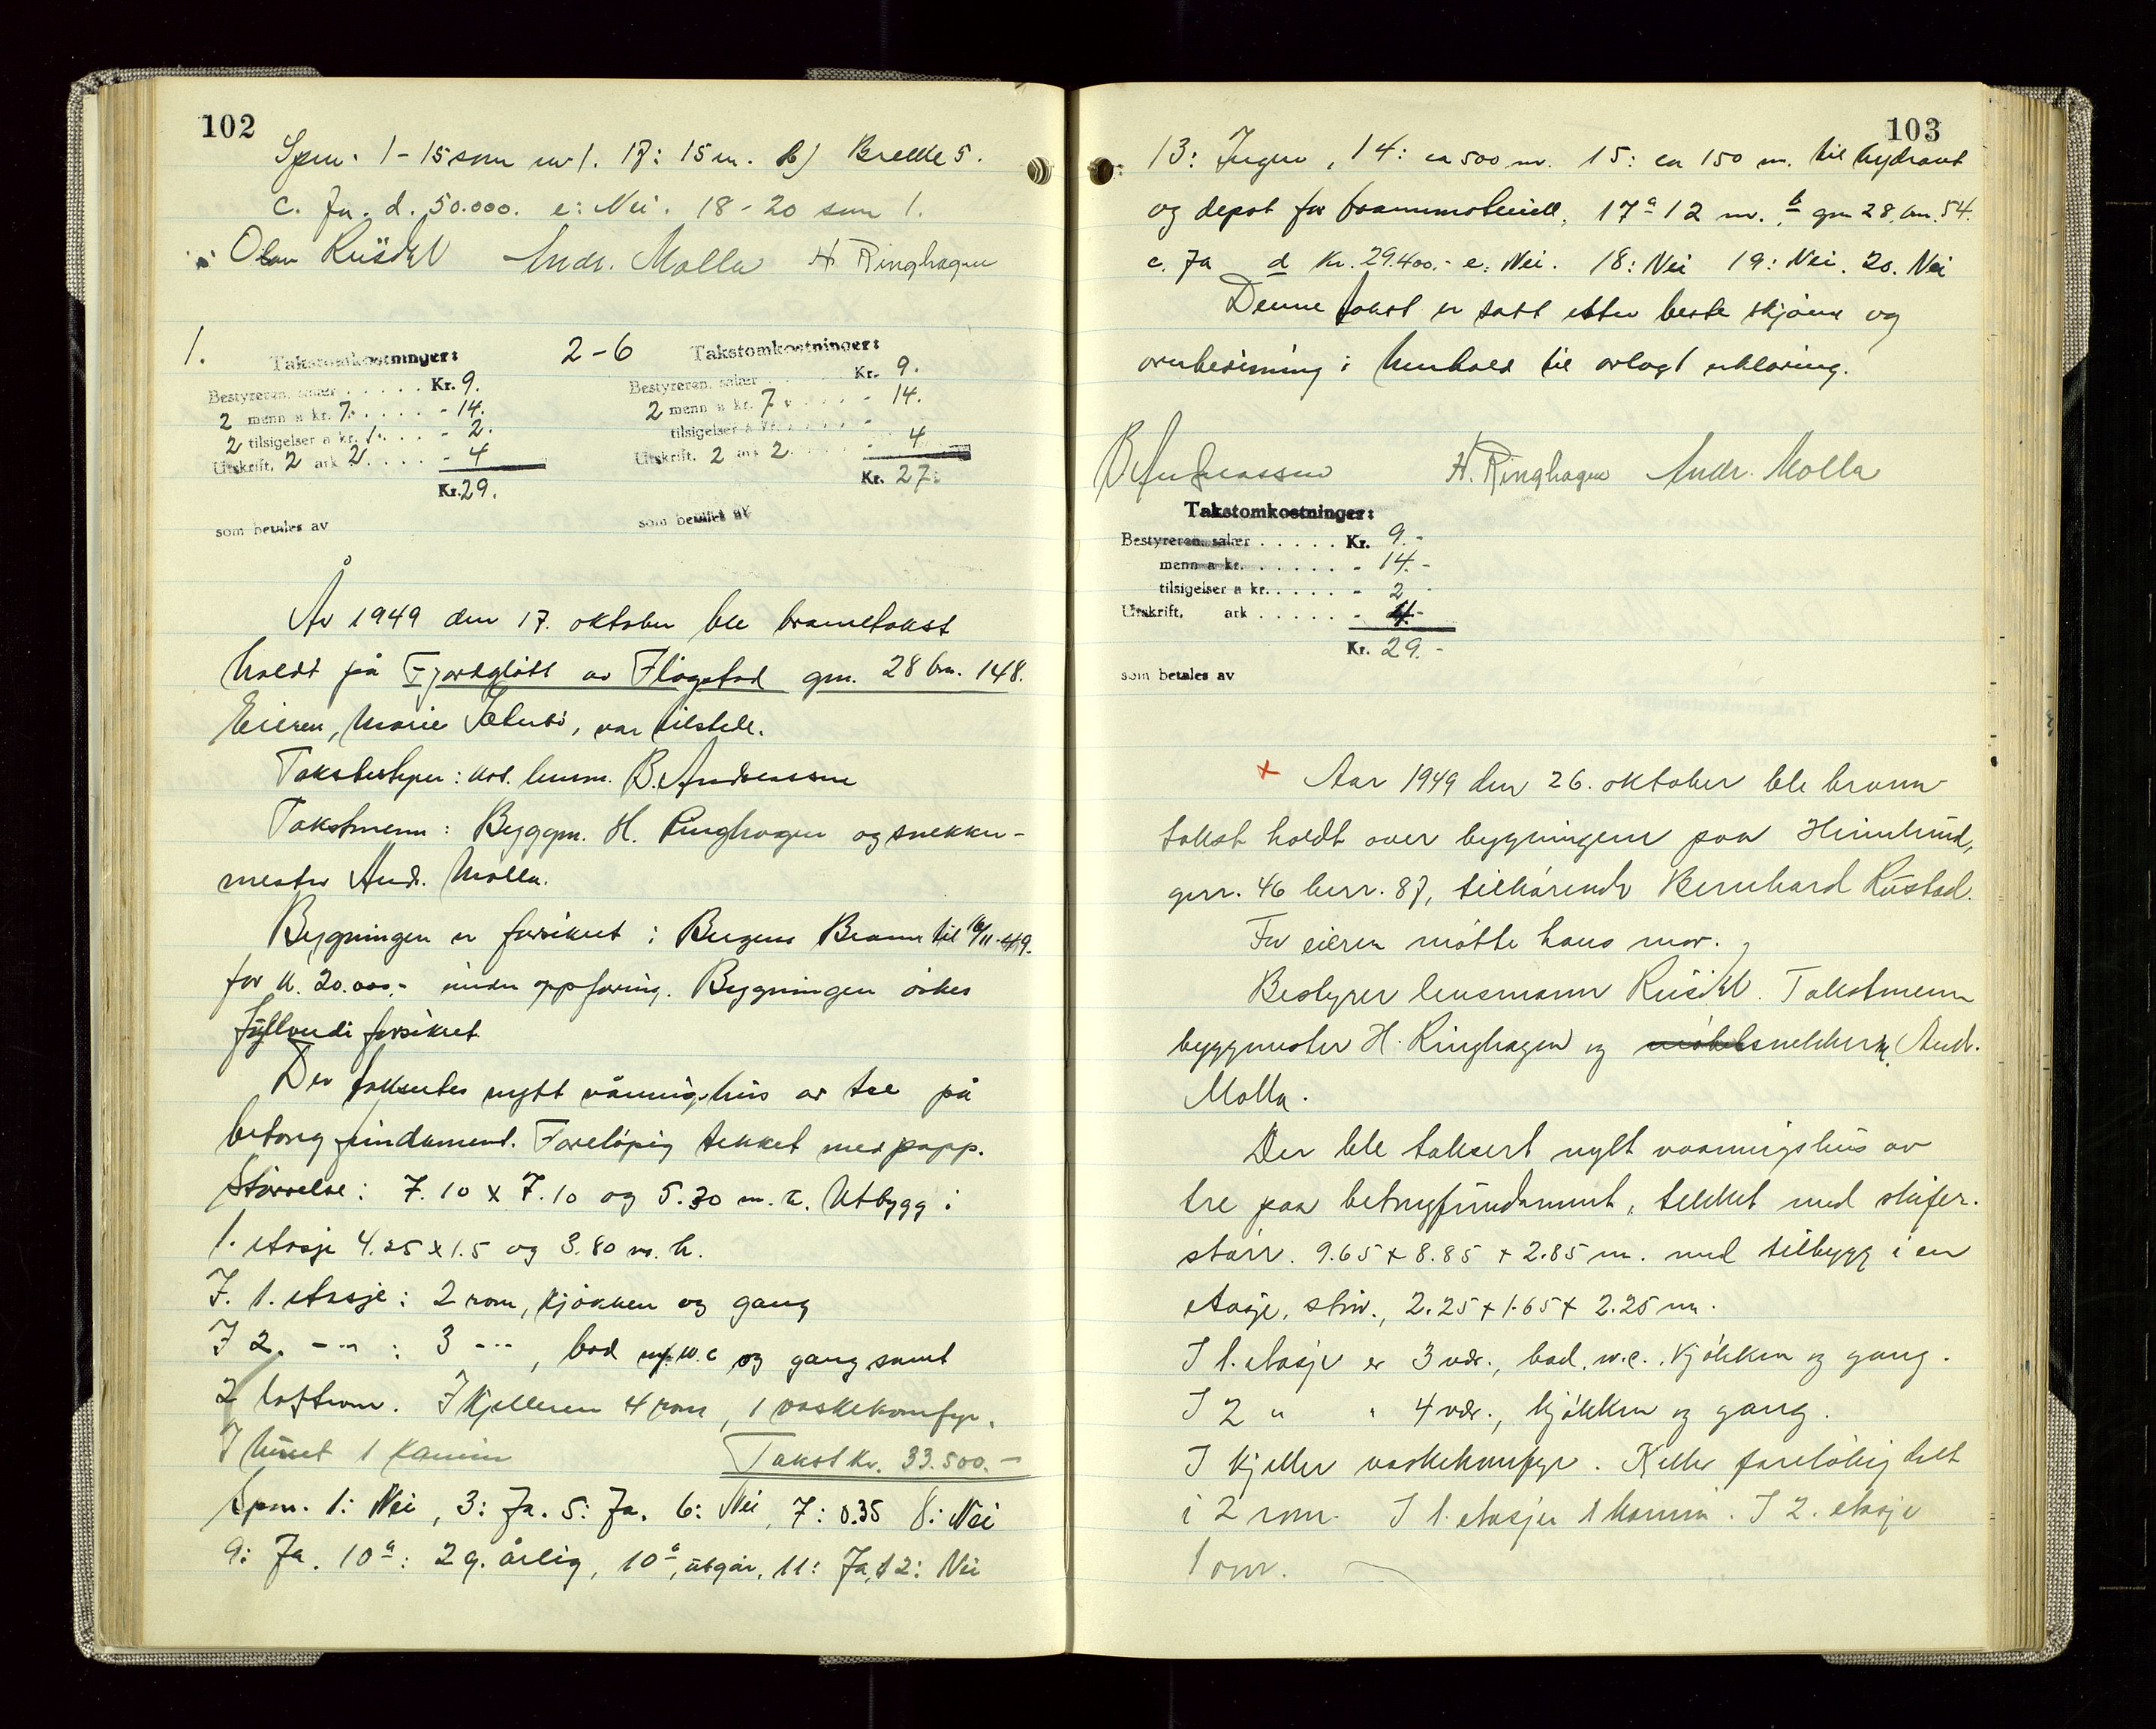 102
Spm. 1-15 som nr 1. 17: 15 m. b) Brekke 5.
c. Ja. d. 50.000. e: Nei. 18-20 som 1.
Olav Andr. Molla H. Ringhagen
1. Takstomkostninger:
Bestyreren, salær ..... Kr. 9.
2 menn a kr. 7. .... - 14.
2 tilsigelser a kr. 1. ... - 2.
Utskrift, 2 ark 2. .... - 4
Kr. 29.
som betales av
2-6 Takstomkostninger:
Bestyreren, salær Kr. 9.
2 menn a kr. 7 .... - 14.
tilsigelser a kr. ..... -
Utskrift, 2 ark 2. - 4
Kr. 27.
som betales av
År 1949 den 17. oktober ble branntakst
holdt på Fjordgløtt av Fløgstad gm. 28 bn. 148.
Eieren, Marie , var tilstede.
Takstbestyrer: lensm. B. Andreassen
Takstmenn: Byggm. H. Ringhagen og snekker-
mester Andr. Molla.
Bygningen er forsikret i Bergens Brann til 16/11-49.
for kr. 20.000,- under oppføring. Bygningen ønskes
fullverdi forsikret
Der takseres nytt våningshus av tre på
betong fundament. Foreløpig tekket med papp.
Størrelse: 7.10 x 7.10 og 5.30 m. h. Utbygg i
1. etasje 4.25 x 1.5 og 3.80 m. h.
I. 1. etasje: 2 rom, kjøkken og gang
I 2. -"- : 3 -"-, bad m/ w.c og gang samt
2 loftrom. I kjelleren 4 rom, 1 vaskekomfyr.
I huset 1 kamin Takst kr. 33.500.-
Spm. 1: Nei, 3: Ja. 5: Ja. 6: Nei, 7: 0.35 8: Nei
9: Ja. 10a: 2 g. årlig, 10b, utgår, 11: Ja, 12: Nei
103
13: Ingen, 14: ca 500 m. 15: ca 150 m. til hydrant
og depot for brannmateriell, 17a 12 m. b gm 28, bn. 54.
c. Ja d Kr. 29.400.- e. Nei. 18: Nei 19: Nei. 20. Nei
Denne takst er satt etter beste skjønn og
overbevisning i henhold til avlagt erklæring.
B. Andreassen H. Ringhagen Andr. Molla
Takstomkostninger:
Bestyreren, salær ..... Kr. 9.-
menn a kr. ...... - 14.-
tilsigelser a kr. ..... - 2 -
Utskrift, ark ..... - 4.-
Kr. 29.-
som betales av
x Aar 1949 den 26. oktober ble brann-
takst holdt over bygningen paa Heimlund,
gnr. 46 bnr. 87, tilhørende Bernhard Rustad.
For eieren møtte hans mor.
Bestyrer lensmann . Takstmenn
byggmester H. Ringhagen og møbelsnekkerm. Andr.
Molla.
Der ble taksert nytt vaaningshus av
tre paa betongfundament, tekket med skifer.
størr. 9.65 + 8.85 + 2.85 m. med tilbygg i en
etasje, størr., 2.25 + 1.65 + 2.25 m.
I 1. etasje er 3 vær., bad, w.c., kjøkken og gang.
I 2 " " 4 vær., kjøkken og gang.
I kjeller vaskekomfyr. Kjeller foreløbig delt
i 2 rom. I 1. etasje 1 kamin. I 2. etasje
1 ovn.